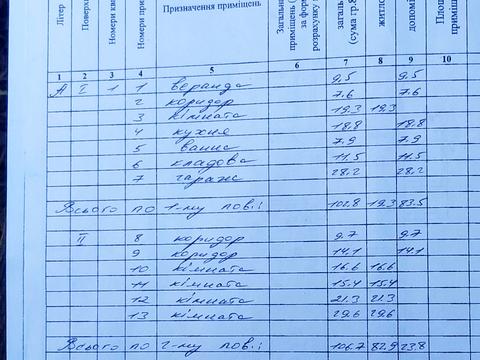 Літер
Поверх
Номери
Номери
Призначення приміщень
приміщень
за
розрахунку
загаль
(сума гр.8
допоміж
приміщ
1 2 3 4 5 6 7 8 9 10
А I 1 1 веранда 9.5 9.5
2 коридор 7.6 7.6
3 кімната 19.3 19.3
4 кухня 18.8 18.8
5 ванна 7.9 7.9
6 кладова 11.5 11.5
7 гараж 28.2 28.2
Всього по 1-му пов.: 102.8 19.3 83.5
II 8 коридор 9.7 9.7
9 коридор 14.1 14.1
10 кімната 16.6 16.6
11 кімната 15.4 15.4
12 кімната 21.3 21.3
13 кімната 29.6 29.6
Всього по 2-му пов.: 106.7 82.9 23.8